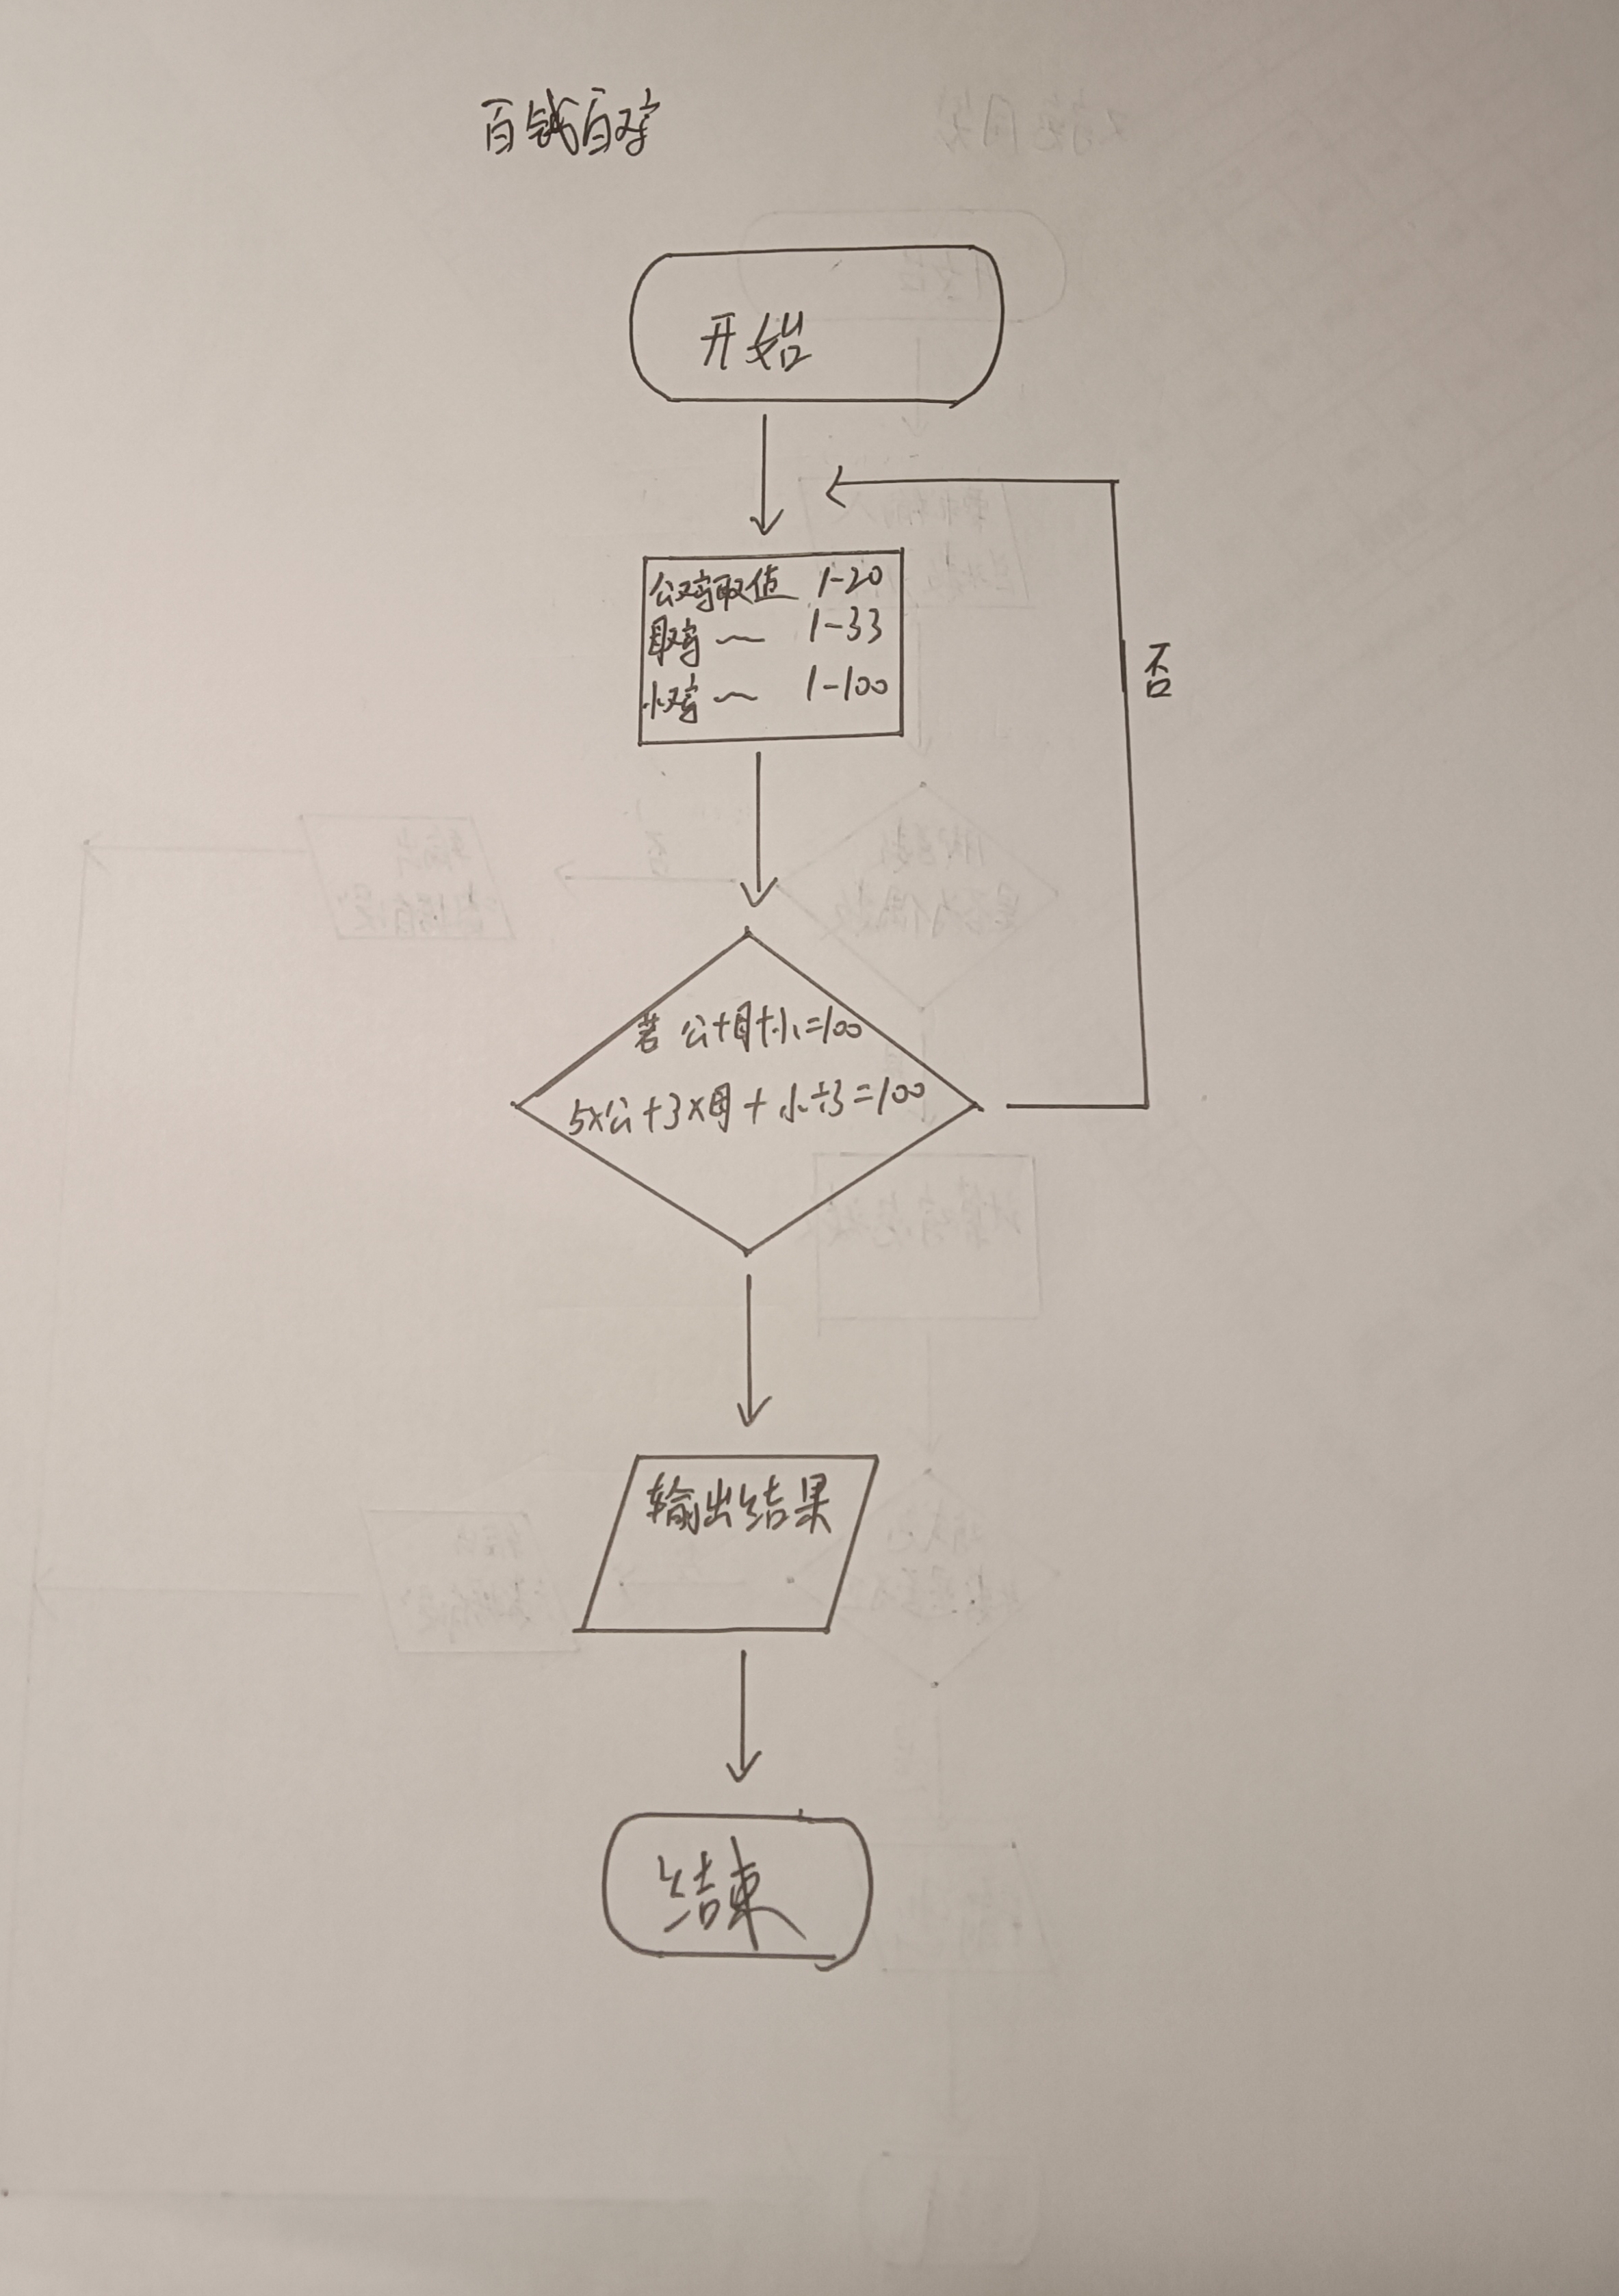 百钱百鸡
开始
公鸡取值 1-20
母鸡 〜 1-33
小鸡 〜 1-100
否
若 公+母+小=100
5×公+3×母+小÷3=100
输出结果
结束